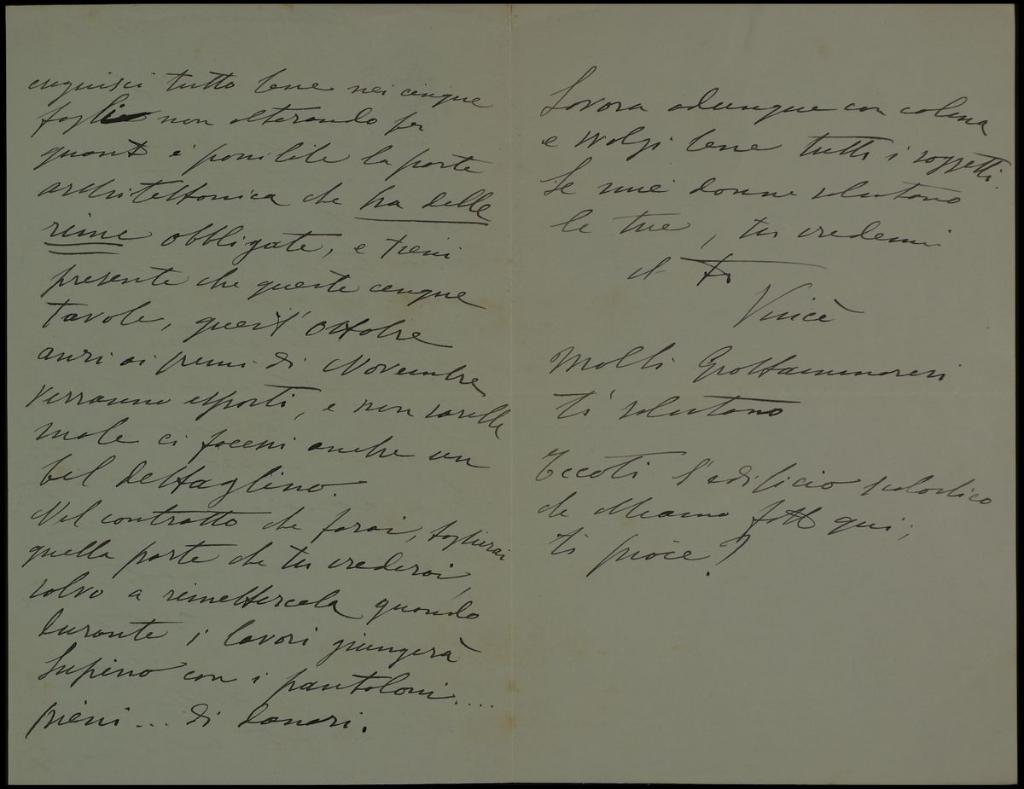 eseguisci tutto bene nei cinque
fogli non alterando per
quanto è possibile la parte
architettonica che ha delle
rime obbligate, e tieni
presente che queste cinque
tavole, quest'Ottobre
anzi ai primi di Novembre
verranno esposti, e non sarebbe
male ci facessi anche un
bel dettaglino.
Nel contratto che farai, toglierai
quella parte che tu crederai,
salvo a rimettercela quando
durante i lavori giungerà
Supino con i pantaloni....
pieni... di danari.
Lavora adunque con calma
e svolgi bene tutti i soggetti.
Le mie donne salutano
le tue, tu credimi
il tuo
Vincè
Molti Grottammaresi
ti salutano
Eccoti l'edificio scolastico
che abbiamo fatto qui;
ti piace?